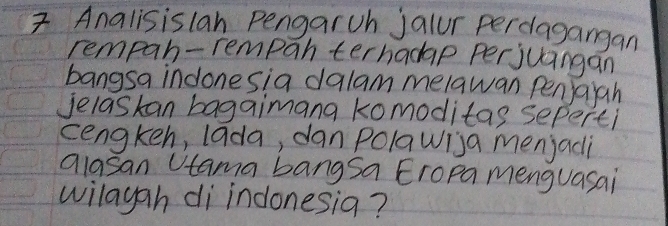 7 Analisislah Pengaruh jalur perdagangan
rempah-rempah terhadap perjuangan
bangsa indonesia dalam melawan Penjajah
jelaskan bagaimana komoditas seperti
cengkeh, lada, dan polawija menjadi
alasan Utama bangsa Eropa menguasai
wilayah di indonesia?